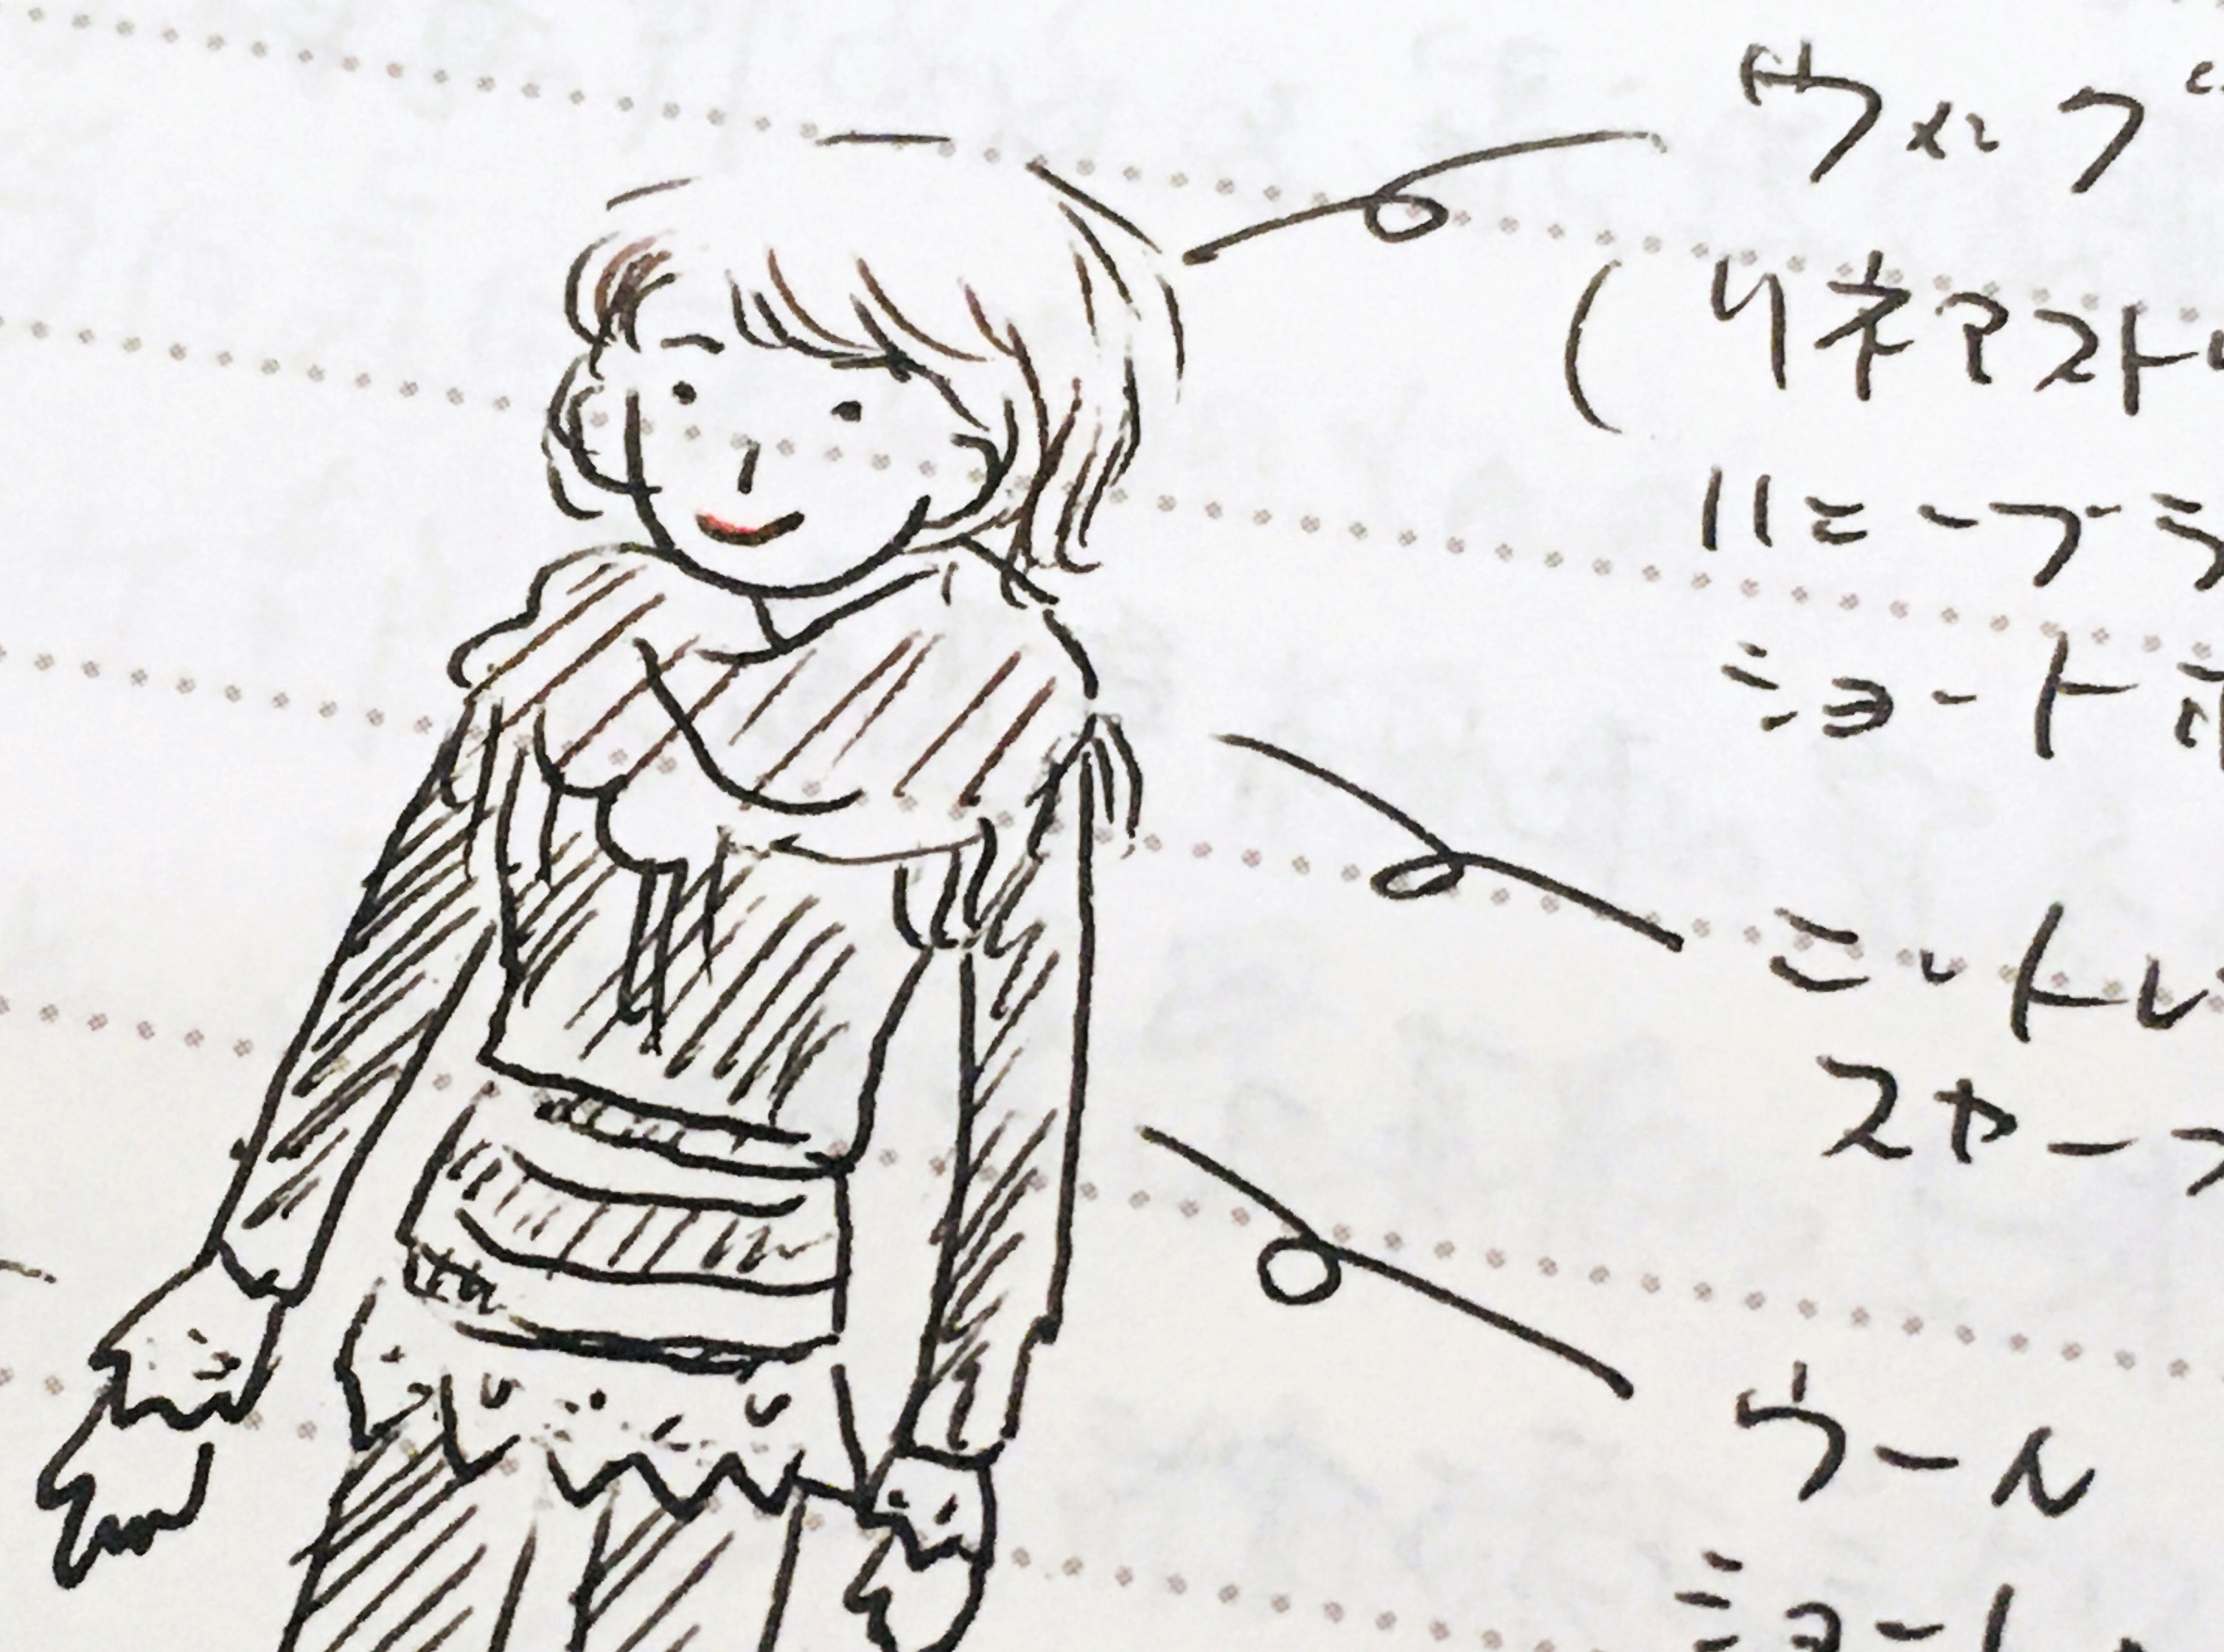 ウィッグ
(リネアスト
ハニーブラ
ショートボ
ニットレ
スヤーフ
ウール
ショート